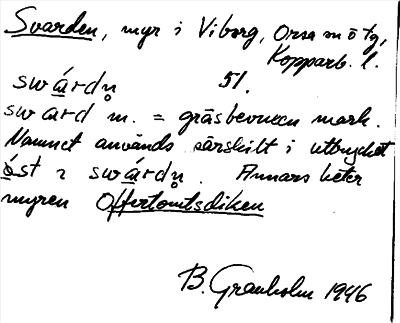 Svarden, myr i Viborg, Orsa m o tg,
Kopparb. l.
swárdn̥ 51.
sward m. = gräsbevuxen mark.
Namnet används särskilt i uttrycket
óst i swárdn̥. Annars heter
myren Offertomtsdiken
B. Granholm 1946